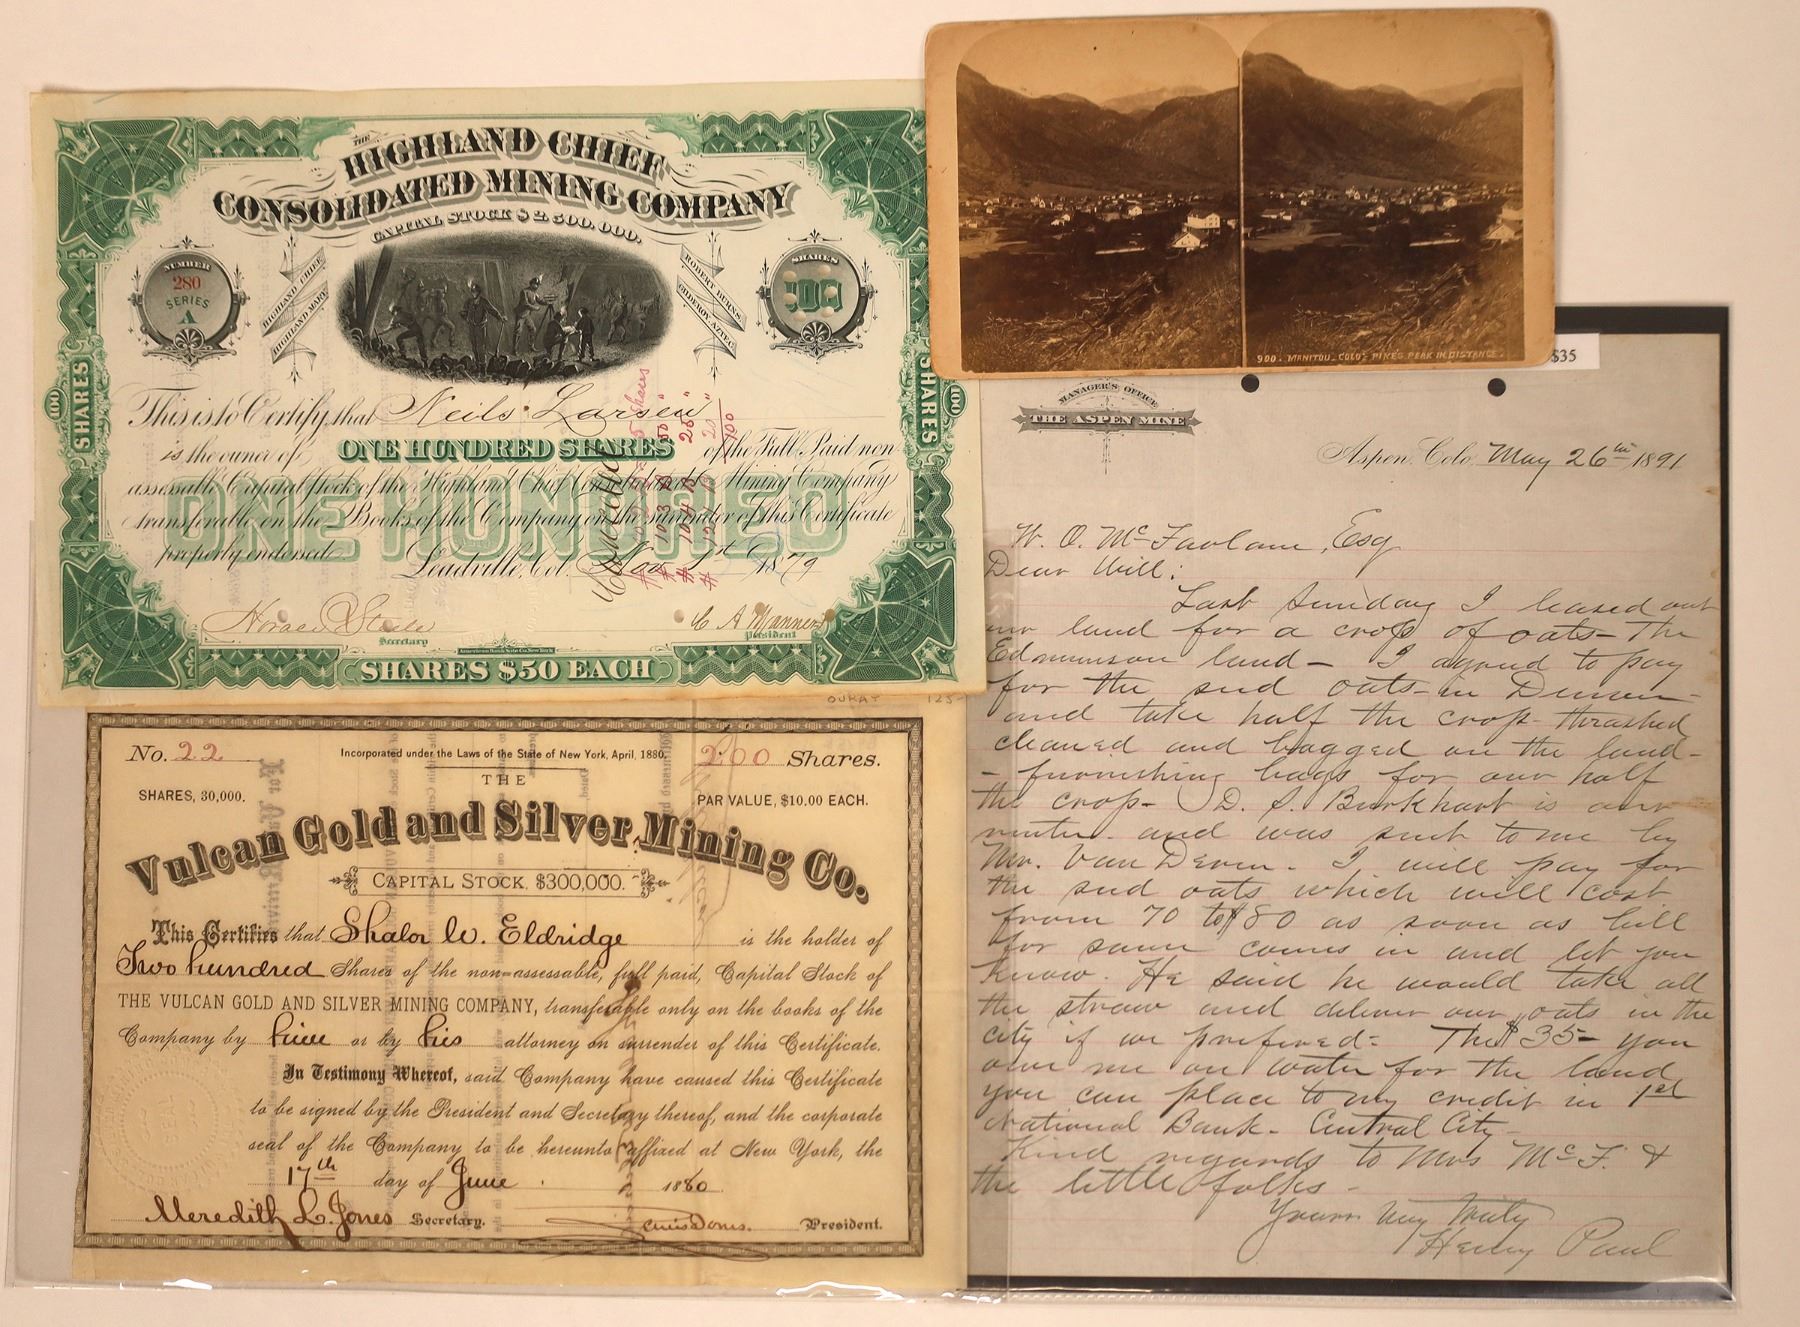 THE
HIGHLAND CHIEF
CONSOLIDATED MINING COMPANY
CAPITAL STOCK $2,500,000.
NUMBER
280
SERIES
A
HIGHLAND CHIEF
HIGHLAND MARY
ROBERT BURNS
GILDEROY-AZTEC
SHARES
100
100
SHARES
100
SHARES
This is to Certify that Neils Larsen
is the owner of ONE HUNDRED SHARES of the Full Paid non-
assessable Capital Stock of the Highland Chief Consolidated Mining Company
transferable on the Books of the Company on the surrender of this Certificate
properly endorsed.
ONE HUNDRED
Leadville, Col. Nov 1st 1879
Cancelled
Horace Steele
Secretary
C A Manners
President
American Bank Note Co. New York
SHARES $50 EACH
900. MANITOU_COLO- PIKES PEAK IN DISTANCE.
$35
OURAY 125-
No. 22
Incorporated under the Laws of the State of New York, April, 1880.
200 Shares.
SHARES, 30,000.
THE
PAR VALUE, $10.00 EACH.
Vulcan Gold and Silver Mining Co.
CAPITAL STOCK, $300,000.
This Certifies that Shalor W. Eldridge is the holder of
Two hundred Shares of the non-assessable, full paid, Capital Stock of
THE VULCAN GOLD AND SILVER MINING COMPANY, transferable only on the books of the
Company by him or by his attorney on surrender of this Certificate.
In Testimony Whereof, said Company have caused this Certificate
to be signed by the President and Secretary thereof, and the corporate
seal of the Company to be hereunto affixed at New York, the
17th day of June 1880.
Meredith L. Jones Secretary.
President.
MANAGER'S OFFICE
THE ASPEN MINE
Aspen, Colo. May 26th 1891
W. O. McFarlane, Esq
Dear Will:
Last Sunday I leased out
our land for a crop of oats - The
Edmunson land - I agreed to pay
for the seed oats - in Denver -
and take half the crop - thrashed
cleaned and bagged on the land -
- furnishing bags for our half
the crop - D. S. Burkhart is our
renter - and was sent to me by
Mr. Van Deren. I will pay for
the seed oats which will cost
from 70 to $80 as soon as bill
for same comes in and let you
know. He said he would take all
the straw and deliver our oats in the
city if we prefered - The $35- you
owe me on water for the land
you can place to my credit in 1st
National Bank - Central City -
Kind regards to Mrs McF. &
the little folks -
Yours very truly
Henry Paul